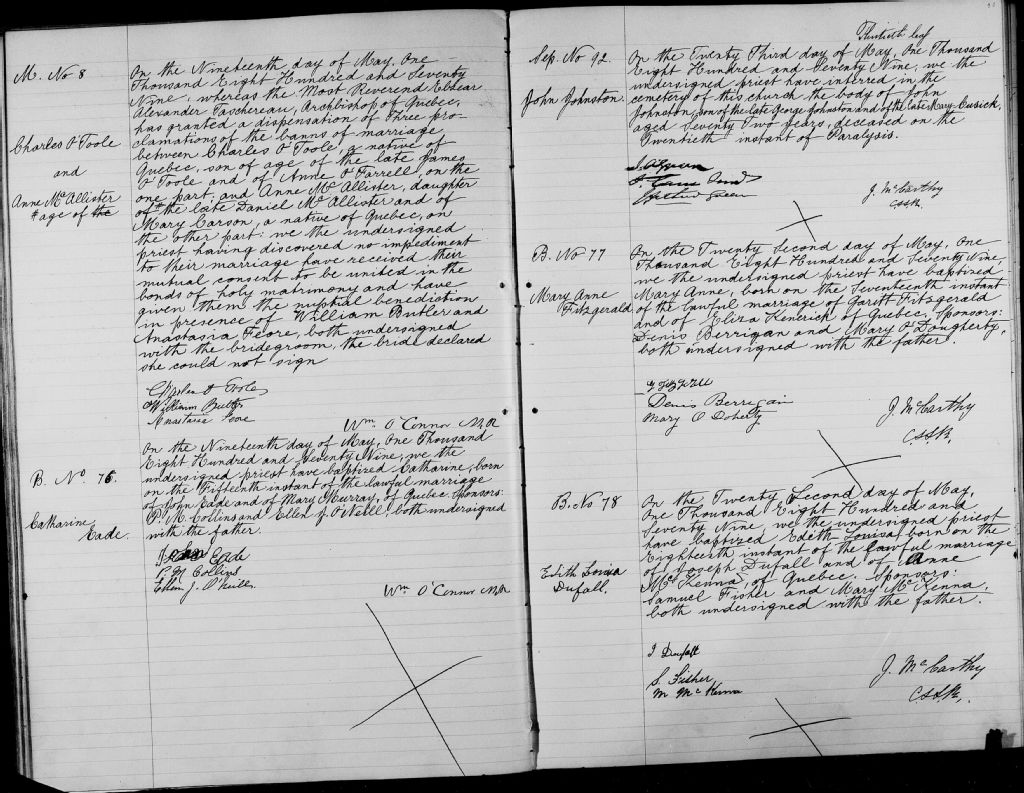 M. No 8
Charles O'Toole
and
Anne McAllister
# age of the
On the Nineteenth day of May, One
Thousand Eight Hundred and Seventy
Nine, whereas the Most Reverend Elzear
Alexander Taschereau, Archbishop of Quebec,
has granted a dispensation of three pro-
clamations of the banns of marriage
between Charles O'Toole, a native of
Quebec, son of age of the late James
O'Toole and of Anne O'Farrell, on the
one part; and Anne McAllister, daughter
of the late Daniel McAllister and of
Mary Carson, a native of Quebec, on
the other part: we the undersigned
priest having discovered no impediment
to their marriage have received their
mutual consent to be united in the
bonds of holy matrimony and have
given them the nuptial benediction
in presence of William Butler and
Anastasia Flore, both undersigned
with the bridegroom, the bride declared
she could not sign
Charles O Toole
William Butler
Anastasia
Wm O'Connor
B. No. 76.
Catharine
Eade.
On the Nineteenth day of May, One Thousand
Eight Hundred and Seventy Nine, we the
undersigned priest have baptized Catharine, born
on the Fifteenth instant of the lawful marriage
of John Eade and of Mary Murray, of Quebec. Sponsors:
P. M. Collins and Ellen J. O'Neill, both undersigned
with the father.
John Eade
P M Collins
Ellen J. O'Neill
Wm O'Connor
Thirtieth leaf
Sep. No 92.
John Johnston.
On the Twenty Third day of May, One Thousand
Eight Hundred and Seventy Nine, we the
undersigned priest have interred in the
cemetery of this church the body of John
Johnston, son of the late George Johnston and of the late Mary Cusick,
aged Seventy Two years, deceased on the
Twentieth instant of Paralysis.
J. McCarthy
C.SS.R.
B. No 77
Mary Anne
Fitzgerald
On the Twenty Second day of May, One
Thousand Eight Hundred and Seventy Nine,
we the undersigned priest have baptized
Mary Anne, born on the Seventeenth instant
of the lawful marriage of Garitt Fitzgerald
and of Eliza Kenrick of Quebec, Sponsors:
Denis Berrigan and Mary O'Dougherty,
both undersigned with the father.
Denis Berrigan
Mary O Doherty
J. McCarthy
C.SS.R.
B. No 78
Edith Louisa
Dufall.
On the Twenty Second day of May,
One Thousand Eight Hundred and
Seventy Nine, we the undersigned priest
have baptized Edith Louisa, born on the
Eighteenth instant of the lawful marriage
of Joseph Dufall and of Anne
McKenna, of Quebec. Sponsors:
Samuel Fisher and Mary McKenna,
both undersigned with the father.
J Dufalt
S. Fisher
M McKenna
J. McCarthy
C.SS.R.